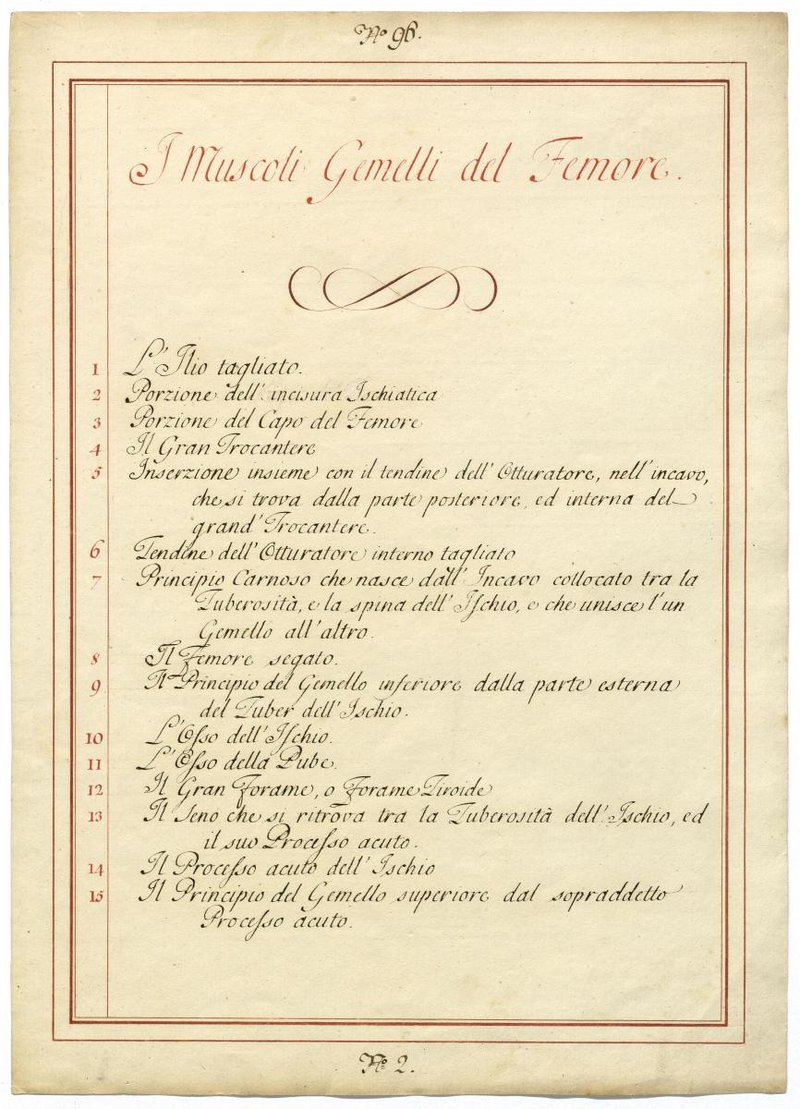 Nº 96.
I Muscoli Gemelli del Femore.
1 L'Ilio tagliato.
2 Porzione dell'incisura Ischiatica
3 Porzione del Capo del Femore
4 Il Gran Trocantere
5 Inserzione insieme con il tendine dell'Otturatore, nell'incavo,
che si trova dalla parte posteriore, ed interna del
grand'Trocantere.
6 Tendine dell'Otturatore interno tagliato
7 Principio Carnoso che nasce dall'Incavo collocato tra la
Tuberosità, e la spina dell'Ischio, e che unisce l'un
Gemello all'altro.
8 Il Femore segato.
9 Il Principio del Gemello inferiore dalla parte esterna
del Tuber dell'Ischio.
10 L'Osso dell'Ischio.
11 L'Osso della Pube.
12 Il Gran Forame, o Forame Tiroide
13 Il Seno che si ritrova tra la Tuberosità dell'Ischio, ed
il suo Processo acuto.
14 Il Processo acuto dell'Ischio
15 Il Principio del Gemello superiore dal sopraddetto
Processo acuto.
Nº 2.